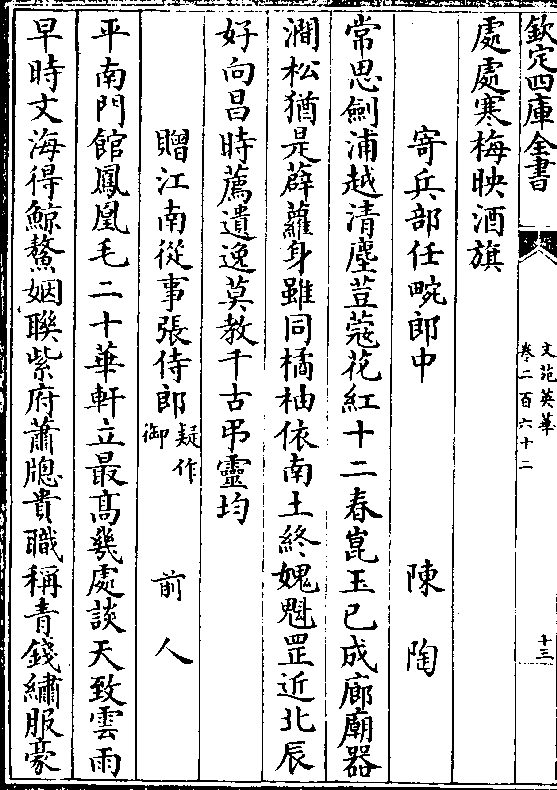 欽定四庫全書
文苑英華
卷二百六十二
十三
處處寒梅映酒旗
寄兵部任畹郎中 陳陶
常思劍浦越清塵荳蔻花紅十二春崑玉已成廊廟器
澗松猶是薜蘿身雖同橘柚依南土終媿魁罡近北辰
好向昌時薦遺逸莫教千古弔靈均
贈江南從事張侍郎疑作御 前人
平南門館鳳凰毛二十華軒立最高幾處談天致雲雨
早時文海得鯨鰲姻聯紫府蕭牕貴職稱青錢繡服豪